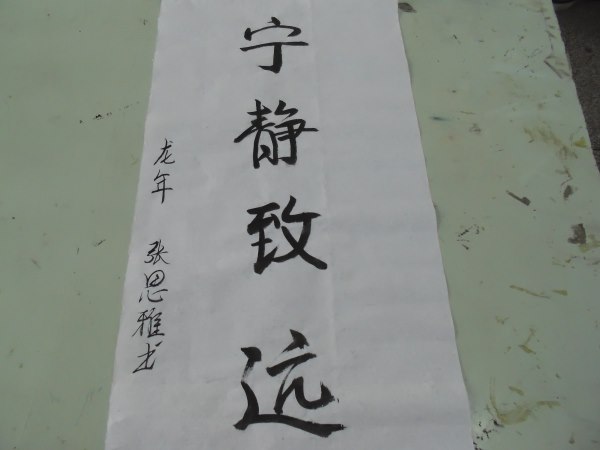 宁静致远
龙年 张思雅书